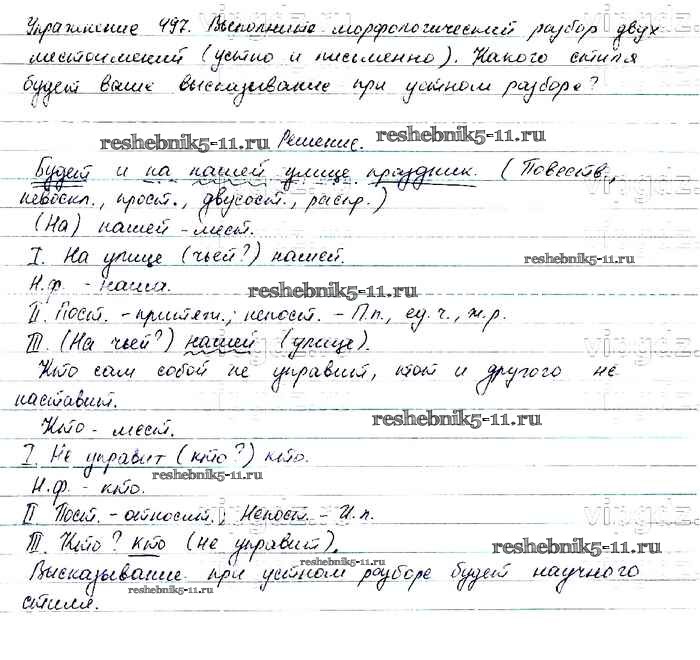 Упражнение 497. Выполните морфологический разбор двух
местоимений (устно и письменно). Какого стиля
будет ваше высказывание при устном разборе?
reshebnik5-11.ru Решение. reshebnik5-11.ru
Будет и на нашей улице праздник. (Повеств.,
невоскл., прост., двусост., распр.)
(На) нашей - мест.
I. На улице (чьей?) нашей. reshebnik5-11.ru
Н.ф. - наша. reshebnik5-11.ru
II. Пост. - притяж.; непост. - П.п., ед.ч., ж.р.
III. (На чьей?) нашей (улице).
Кто сам собой не управит, тот и другого не
наставит. reshebnik5-11.ru
Кто - мест.
I. Не управит (кто?) кто.
reshebnik5-11.ru
Н.ф. - кто.
II Пост. - относит.; Непост. - И.п.
III. Кто? кто (не управит). reshebnik5-11.ru
reshebnik5-11.ru
Высказывание при устном разборе будет научного
стиля. reshebnik5-11.ru